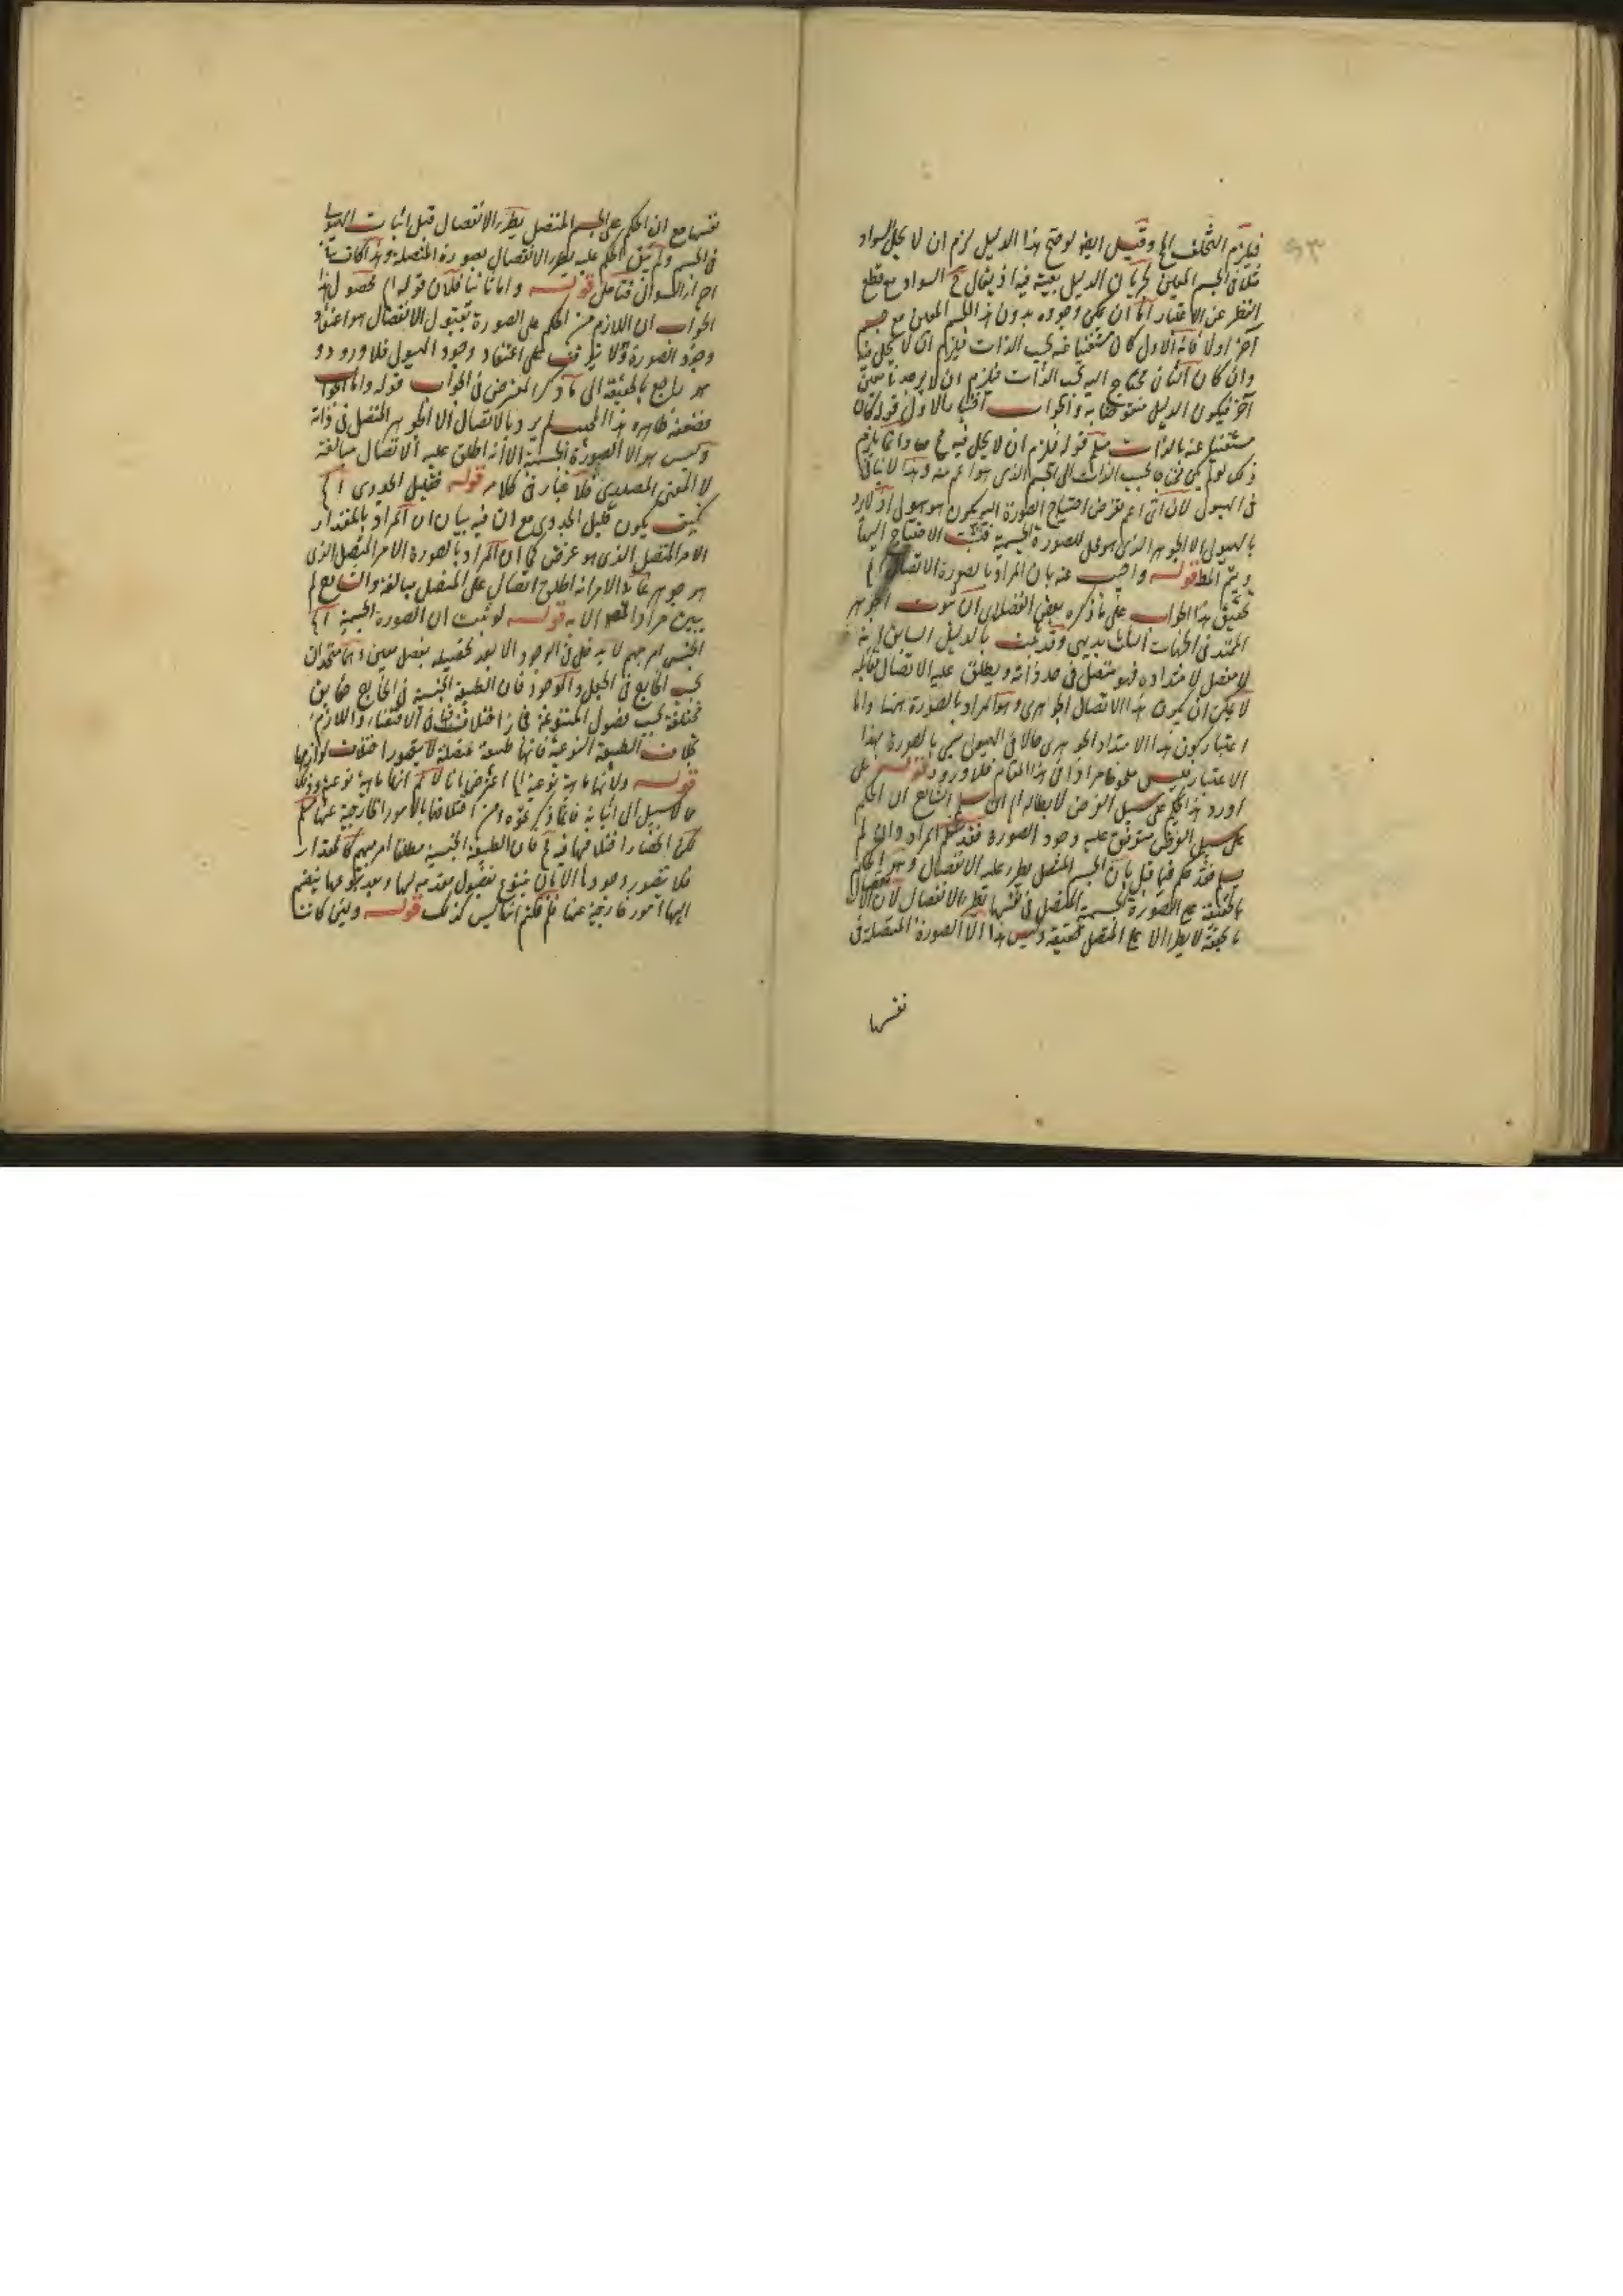 فيلزم التخلف الخ وقيل ايضا لو صح هذا الدليل لزم ان لا يحل السواد
مثلا في الجسم المعين لجريان الدليل بعينه فيه اذ يقال ح السواد مع قطع
النظر عن الاغيار اما ان يمكن وجوده بدون هذا الجسم المعين مع جسم
آخر اولا فانه الاول كان مستغنيا عنه بحسب الذات فيلزم ان لا يحل فيه
وان كان الثاني محتاج اليه بحسب الذات فيلزم ان لا يوجد في جسم
آخر فيكون الدليل منقوضا به والجواب انا نختار الاول قوله كان
مستغنيا عنه بالذات مسلم قوله فيلزم ان لا يحل فيه ح مم وانما يلزم
ذلك لو لم يكن محتاجا بحسب الذات الى الجسم الذي هو اعم منه وهذا لا يتأتى
في الهيولى لان اي اعم نفرض احتياج الصورة اليه يكون هو هيولى اذ لا نريد
بالهيولى الا الجوهر الذي هو محل للصورة الجسمية فثبت الاحتياج اليها
ويتم المط قوله واجيب عنه بان المراد بالصورة الاتصال الخ
تحقيق هذا الجواب على ما ذكره بعض الفضلاء ان ثبوت الجوهر
الممتد في الجهات الثلث بديهي وقد ثبت بالدليل السابق انه
لا مفصل لامتداده فهو متصل في حد ذاته ويطلق عليه الاتصال مبالغة
لا يمكن ان يكون هذا الاتصال الجوهري وهو المراد بالصورة ههنا واما
اعتبار كون هذا الامتداد الجوهري حالا في الهيولى حتى يسمى بالصورة بهذا
الاعتبار فليس ملحوظا مرادا في هذا المقام فلا ورود قوله على
اورد هذا الحكم على سبيل الفرض لابطاله الخ ان سلم الشارح ان الحكم
على سبيل الفرض متوقف عليه وجود الصورة فقد سلم المراد وان لم
يسلم فقد حكم فيما قبل بان الجسم المتصل يطرء عليه الانفصال وهو الحكم
بالحقيقة على الصورة الجسمية المتصل في نفسها بطرء الانفصال لان الانفصال
بالحقيقة لا يطرء الا على المتصل حقيقة وليس هذا الا الصورة المتصلة في
نفسها
نفسها مع ان الحكم على الجسم المتصل بطرء الانفصال قبل اثبات الهيولى
في الجسم ولم يتيقن الحكم عليه بطرء الانفصال بصورة المتصلة وهذا كاف
فتأمل قوله واما ثانيا فلان قوله الخ محصول هذا
الجواب ان اللازم من الحكم على الصورة بقبول الانفصال هو اعتقاد
وجود الصورة ولا يتوقف على اعتقاد وجود الهيولى فلا ورود و
هو راجع بالحقيقة الى ما ذكر المعترض في الجواب قوله واما الجواب
فضعفه ظاهر هذا المجيب لم يرد بالاتصال الا الجوهر المتصل في ذاته
وليس هو الا الصورة الجسمية الا انه اطلق عليه الاتصال مبالغة
لا المعنى المصدري فلا غبار في كلامه قوله فقليل الجدوى الخ
كيف يكون قليل الجدوى مع ان فيه بيان ان المراد بالمقدار
الامر المتصل الذي هو عرض كما ان المراد بالصورة الامر المتصل الذي
هو جوهر غاية الامر انه اطلق اتصال على المتصل مبالغة والشارح لم
يبين مراد القوم الا به قوله لو ثبت ان الصورة الجسمية الخ
الجنس امر مبهم لا يدخل في الوجود الا بعد تحصيله بفصل معين وهما متحدان
بحسب الخارج في الجعل والوجود فان الطبيعة الجنسية في الخارج حقايق
مختلفة بحسب فصول المتنوعة فجاز اختلافها في الاقتضاء واللازم
بخلاف الطبيعة النوعية فانها طبيعة محصلة لا يتصور اختلاف لوازمها
قوله ولانها ماهية نوعية الخ اعترض بانا لا نم انها ماهية نوعية وذلك
مما لا سبيل الى اثباته فانما ذكرتموه من اختلافها بالامور الخارجية عنها مسلم
لكن انحصار اختلافها فيه مم فان الطبيعة الجنسية مطلقا امر مبهم كالمقدار
فلا يتصور وجودها الا بان يتنوع بفصول منضمة لها وبعد تنوعها ينضم
اليها امور خارجية عنها فلم قلتم انها ليس كذلك قوله وليتى كانت